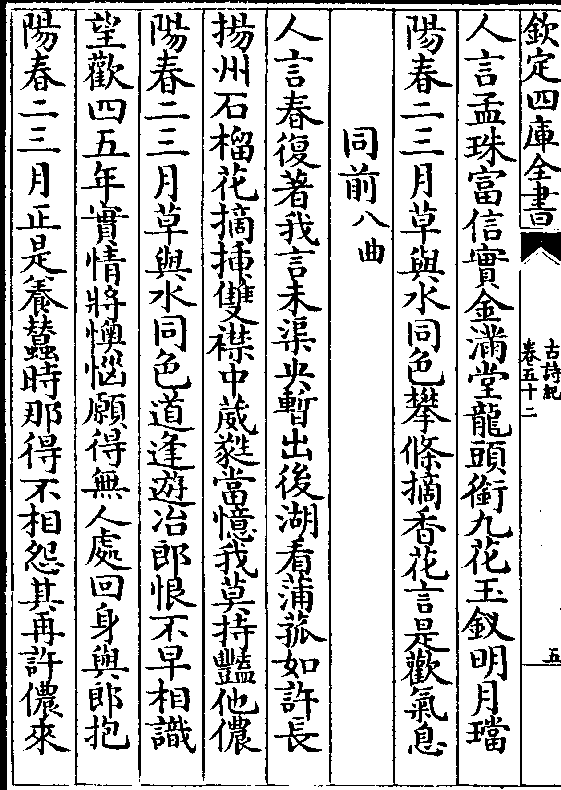 欽定四庫全書
古詩紀
卷五十二
五
人言孟珠富信實金滿堂龍頭銜九花玉釵明月璫
陽春二三月草與水同色攀條摘香花言是歡氣息
同前八曲
人言春復著我言未渠央暫出後湖看蒲菰如許長
揚州石榴花摘揷雙襟中葳蕤當憶我莫持豔他儂
陽春二三月草與水同色道逢遊冶郎恨不早相識
望歡四五年實情將懊惱願得無人處回身與郎抱
陽春二三月正是養蠶時那得不相怨其再許儂來